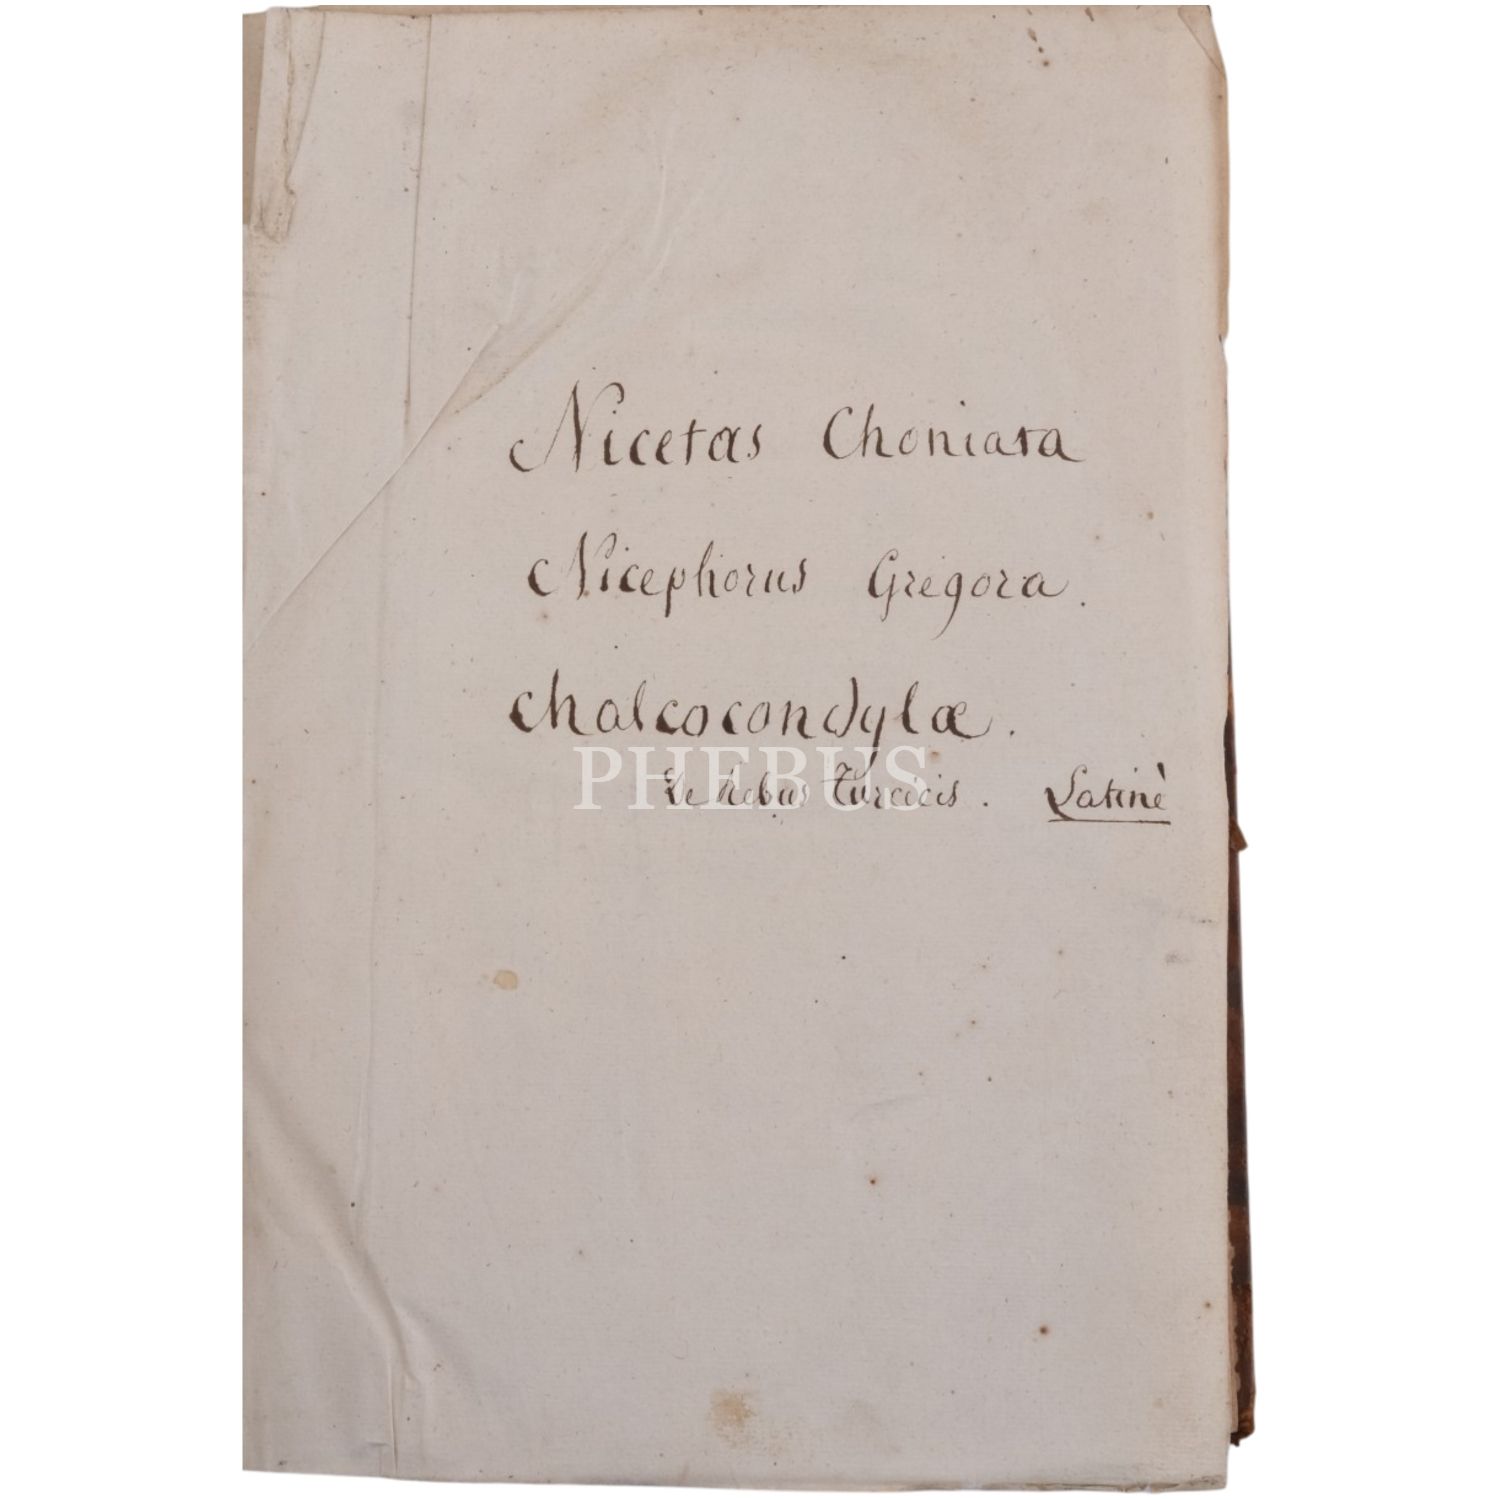 Nicetas Choniata
Nicephorus Gregora.
Chalcocondylæ.
De Rebus Turcicis. Latinè
PHEBUS